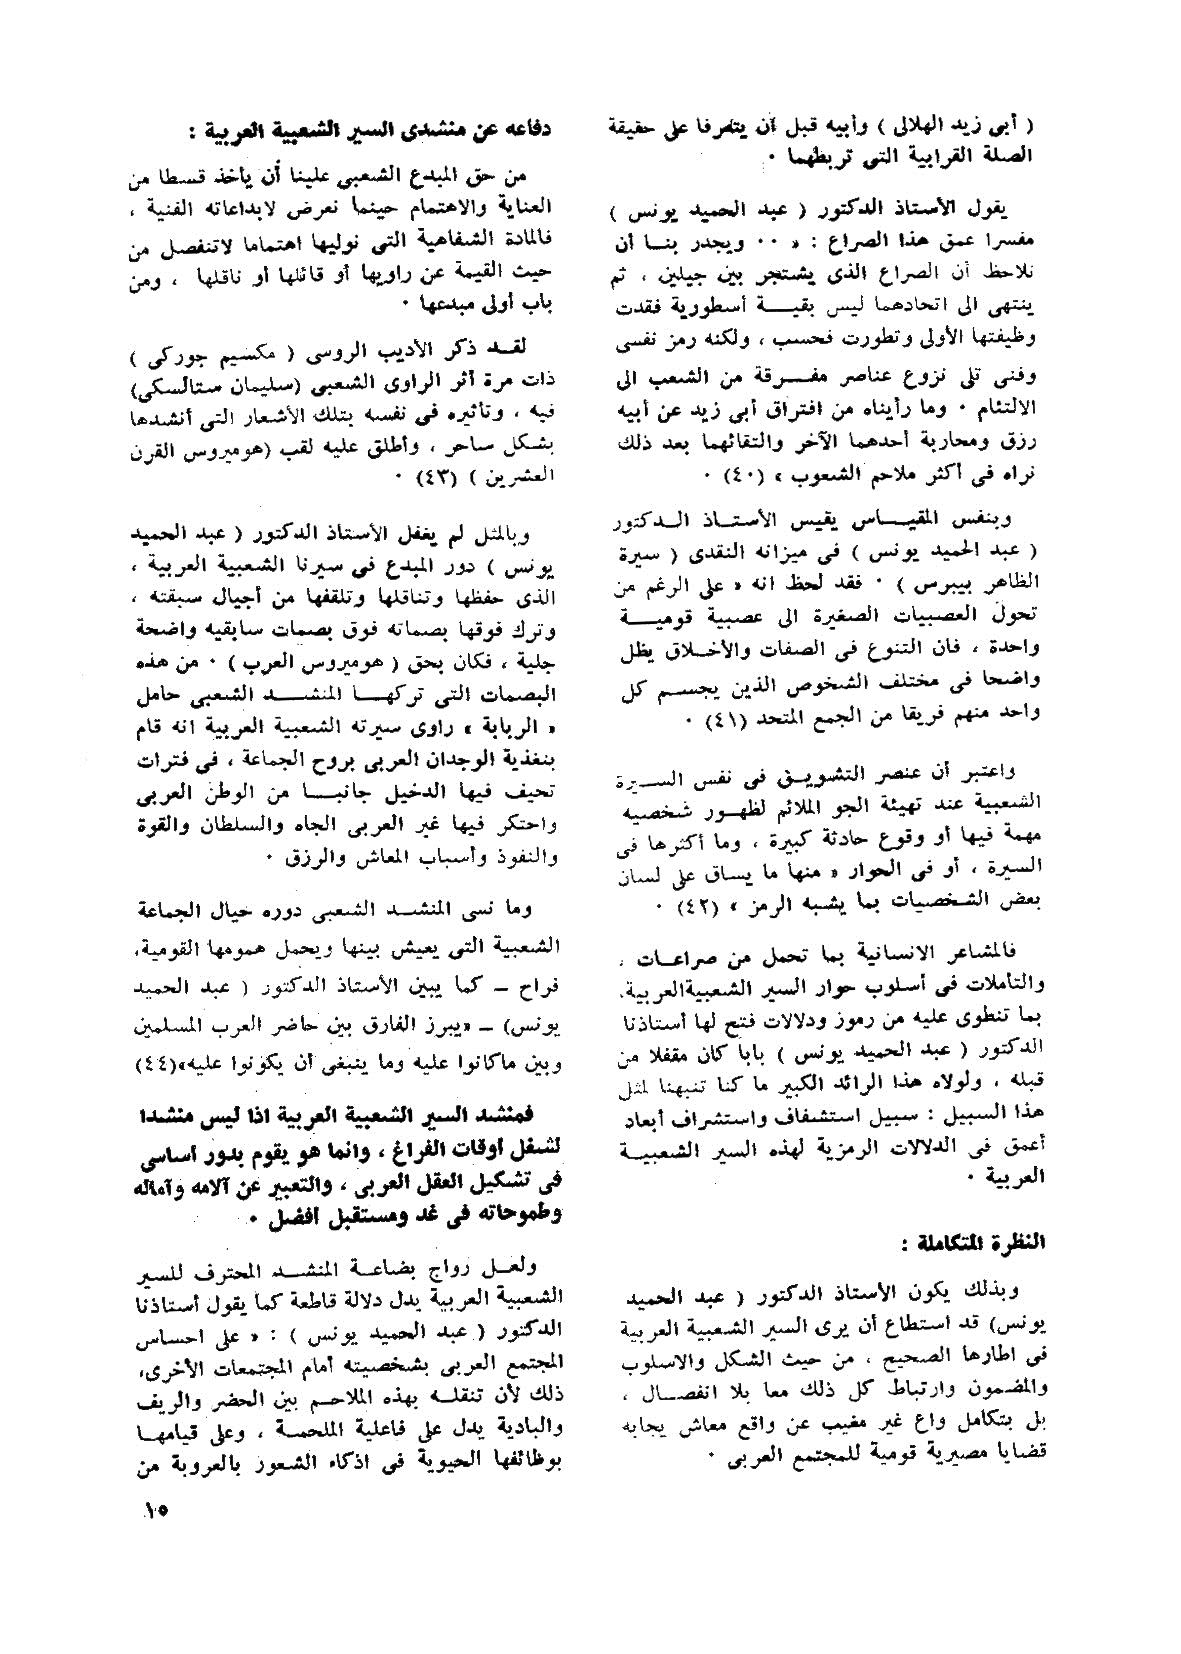 ( أبى زيد الهلالى ) وأبيه قبل أن يتعرفا على حقيقة
الصلة القرابية التى تربطهما ٠
يقول الأستاذ الدكتور ( عبد الحميد يونس )
مفسرا عمق هذا الصراع : « ٠٠ ويجدر بنا أن
نلاحظ أن الصراع الذى يشتجر بين جيلين ، ثم
ينتهى الى اتحادهما ليس بقية أسطورية فقدت
وظيفتها الأولى وتطورت فحسب ، ولكنه رمز نفسى
وفنى تلى نزوع عناصر مفرقة من الشعب الى
الالتئام ٠ وما رأيناه من افتراق أبى زيد عن أبيه
رزق ومحاربة أحدهما الآخر والتقائهما بعد ذلك
نراه فى أكثر ملاحم الشعوب » (٤٠) ٠
وبنفس المقياس يقيس الأستاذ الدكتور
( عبد الحميد يونس ) فى ميزانه النقدى ( سيرة
الظاهر بيبرس ) ٠ فقد لحظ انه « على الرغم من
تحول العصبيات الصغيرة الى عصبية قومية
واحدة ، فان التنوع فى الصفات والأخلاق يظل
واضحا فى مختلف الشخوص الذين يجسم كل
واحد منهم فريقا من الجمع المتحد (٤١) ٠
واعتبر أن عنصر التشويق فى نفس السيرة
الشعبية عند تهيئة الجو الملائم لظهور شخصيه
مهمة فيها أو وقوع حادثة كبيرة ، وما أكثرها فى
السيرة ، أو فى الحوار « منها ما يساق على لسان
بعض الشخصيات بما يشبه الرمز » (٤٢) ٠
فالمشاعر الانسانية بما تحمل من صراعات ،
والتأملات فى أسلوب حوار السير الشعبيةالعربية.
بما تنطوى عليه من رموز ودلالات فتح لها أستاذنا
الدكتور ( عبد الحميد يونس ) بابا كان مقفلا من
قبله ، ولولاه هذا الرائد الكبير ما كنا تنبهنا لمثل
هذا السبيل : سبيل استشفاف واستشراف أبعاد
أعمق فى الدلالات الرمزية لهذه السير الشعبية
العربية ٠
النظرة المتكاملة :
وبذلك يكون الأستاذ الدكتور ( عبد الحميد
يونس) قد استطاع أن يرى السير الشعبية العربية
فى اطارها الصحيح ، من حيث الشكل والاسلوب
والمضمون وارتباط كل ذلك معا بلا انفصال ،
بل بتكامل واع غير مغيب عن واقع معاش يجابه
قضايا مصيرية قومية للمجتمع العربى ٠
دفاعه عن منشدى السير الشعبية العربية :
من حق المبدع الشعبى علينا أن يأخذ قسطا من
العناية والاهتمام حينما نعرض لابداعاته الفنية ،
فالمادة الشفاهية التى نوليها اهتماما لاتنفصل من
حيث القيمة عن راويها أو قائلها أو ناقلها ، ومن
باب أولى مبدعها ٠
لقد ذكر الأديب الروسى ( مكسيم جوركى )
ذات مرة أثر الراوى الشعبى (سليمان ستالسكى)
فيه ، وتأثيره فى نفسه بتلك الأشعار التى أنشدها
بشكل ساحر ، وأطلق عليه لقب (هوميروس القرن
العشرين ) (٤٣) ٠
وبالمثل لم يغفل الأستاذ الدكتور ( عبد الحميد
يونس ) دور المبدع فى سيرنا الشعبية العربية ،
الذى حفظها وتناقلها وتلقفها من أجيال سبقته ،
وترك فوقها بصماته فوق بصمات سابقيه واضحة
جلية ، فكان بحق ( هوميروس العرب ) ٠ من هذه
البصمات التى تركها المنشد الشعبى حامل
« الربابة » راوى سيرته الشعبية العربية انه قام
بتغذية الوجدان العربى بروح الجماعة ، فى فترات
تحيف فيها الدخيل جانبا من الوطن العربى
واحتكر فيها غير العربى الجاه والسلطان والقوة
والنفوذ وأسباب المعاش والرزق ٠
وما نسى المنشد الشعبى دوره حيال الجماعة
الشعبية التى يعيش بينها ويحمل همومها القومية،
فراح ـ كما يبين الأستاذ الدكتور ( عبد الحميد
يونس) ـ «يبرز الفارق بين حاضر العرب المسلمين
وبين ماكانوا عليه وما ينبغى أن يكونوا عليه»(٤٤)
فمنشد السير الشعبية العربية اذا ليس منشدا
لشغل أوقات الفراغ ، وانما هو يقوم بدور أساسى
فى تشكيل العقل العربى ، والتعبير عن آلامه وآماله
وطموحاته فى غد ومستقبل أفضل ٠
ولعل رواج بضاعة المنشد المحترف للسير
الشعبية العربية يدل دلالة قاطعة كما يقول أستاذنا
الدكتور ( عبد الحميد يونس ) : « على احساس
المجتمع العربى بشخصيته أمام المجتمعات الأخرى،
ذلك لأن تنقله بهذه الملاحم بين الحضر والريف
والبادية يدل على فاعلية الملحمة ، وعلى قيامها
بوظائفها الحيوية فى اذكاء الشعور بالعروبة من
١٥